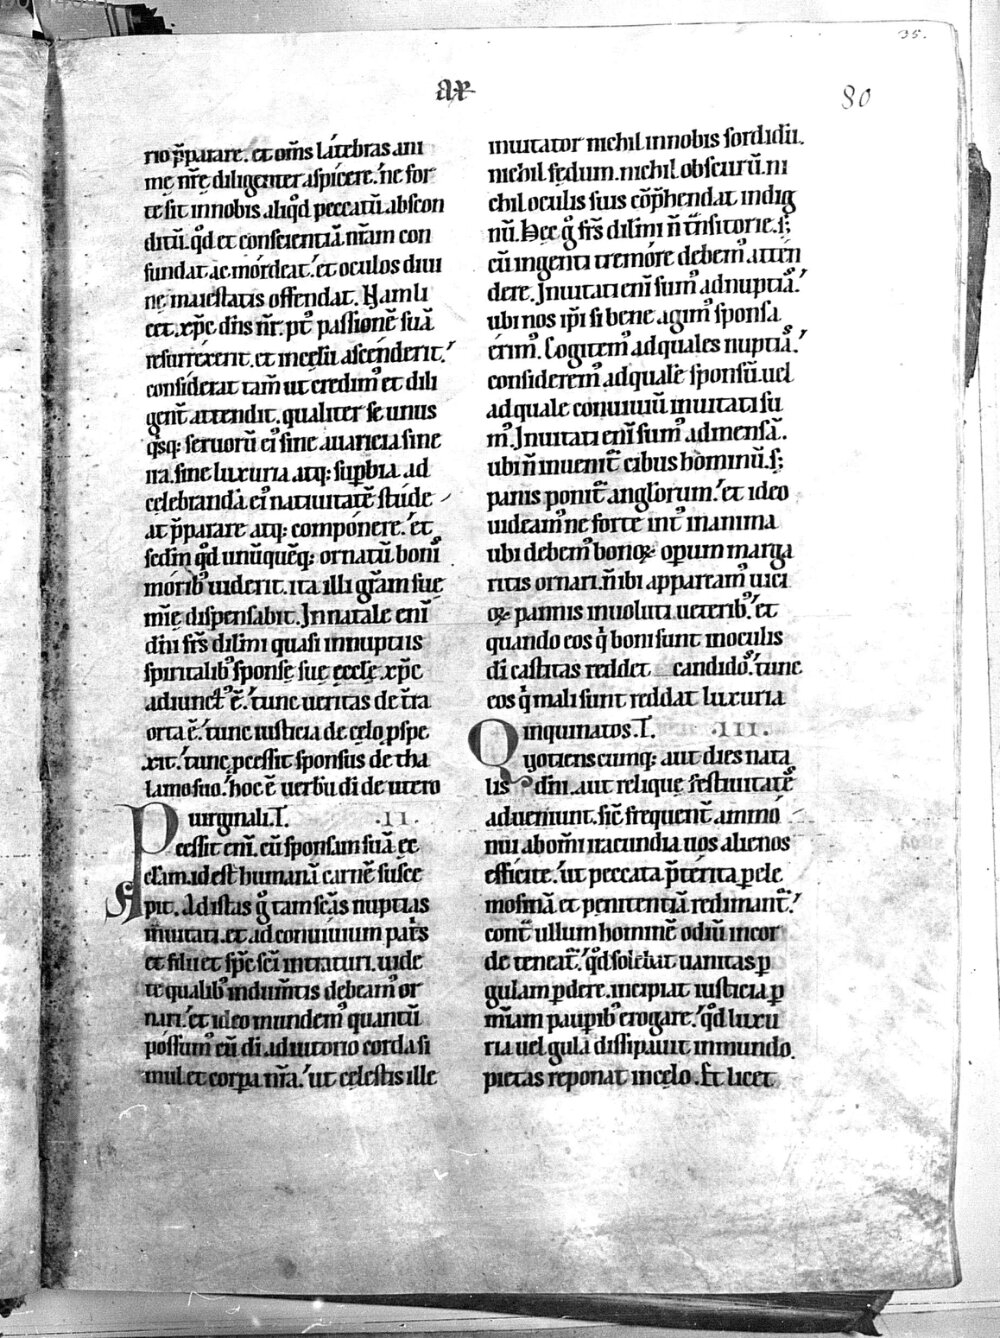 35.
80
ax
rio p̄parare. et om̄s látebras ani
mę nr̄ę diligenter aspicere.' ne for
te sit in nobis aliqd̄ peccatū abscon
ditū. qd̄ et conscientiā nr̄am con
fundat ac mórdeat.' et oculos diui
nę maiestatis offendat. Nam li
cet xp̄c dn̄s nr̄. pt᷒ passionē suā
resurréxerit. et in cęlū ascénderit.'
considerat tam̄ ut credim᷒ et dili
gent̄ attendit. qualiter se unus
qͥsq; seruorū ei᷒ sine auaricia sine
ira. sine luxuria. atq; suꝑbia. ad
celebrandā ei᷒ natiuitatē stúde
at p̄parare atq; compónere.' et
scdm̄ qd̄ unūquēq; ornatū bonis
mórib᷒ uiderit. ita illi gr̄am suę
mīę dispensabit. In natale enī
dn̄i fr̄s dil̄mi quasi in nuptiis
spiritalib᷒ sponsę suę ęcclę xp̄c
adiunct᷒ ē.' tunc ueritas de tr̄a
orta ē.' tunc iusticia de cęlo ꝓspe
xit.' tunc ꝓcessit sponsus de tha
lamo suo.' hoc ē uerbū di de utero
uirginali. T. .II.
Pcessit enī. cū sponsam suā ęc
clam. id est humanā carnē susce
pit. Ad istas gͦ tam sc̄as nuptias
inuitati. et ad conuiuium patr̄s
et filii et sp̄c sc̄i intraturi. uide
te qualib᷒ indum̄tis debeam᷒ or
nari.' et ideo mundem᷒ quantū
póssum᷒ cū di adiutorio corda si
mul et corꝑa nr̄a.' ut cęlestis ille
inuitator nichil in nobis sordidū.
nichil fędum. nichil obscurū. ni
chil oculis suis cōp̄hendat indig
nū. Hęc gͦ fr̄s dil̄mi n̄ tn̄sitorie. s;
cū ingenti tremóre debem᷒ atten
dere. Inuitati enī sum᷒ ad nuptias.'
ubi nos ip̄i si bene agim᷒ sponsa
érim᷒. Cogitem᷒ ad quales nuptias.'
considerem᷒ ad qualē sponsū. uel
ad quale conuiuiū inuitati su
m᷒. Inuitati enī sum᷒ ad mensā.
ubi n̄ inuenit̄ cibus hominū. s;
panis ponit̄ anglorum.' et ideo
uideam᷒ ne forte int᷒ in anima
ubi debem᷒ bonoꝝ oꝑum marga
ritis ornari. n̄ ibi appaream᷒ uici
oꝝ pannis inuoluti ueterib᷒.' et
quando eos qͥ boni sunt in oculis
di castitas reddet candidos.' tunc
eos qͥ mali sunt reddat luxuria
inquinatos. T. .III.
Quotienscunq; aut dies nata
lis dn̄i. aut reliquę festiuitates
adueniunt. sic̄ frequent̄ ammó
nui abom̄i iracundia uos alienos
efficite.' ut peccata p̄térita ꝑ ele
mosinā et penitentiā redimant̄.'
cont̄ ullum hominē odiū in cor
de teneat̄.' qd̄ solebat uanitas ꝑ
gulam ꝑdere. incipiat iusticia ꝑ
mīam pauꝑib᷒ erogare.' qd̄ luxu
ria uel gula dissipauit in mundo.
pietas reponat in cęlo. Et licet